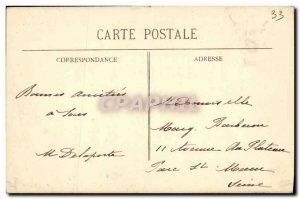 33
CARTE POSTALE
CORRESPONDANCE
ADRESSE
Bonnes amitiés
à tous
M Delaporte
Mademoiselle
Marg
11 Avenue du Plateau
Parc St Maur
Seine